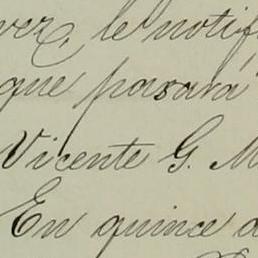 vez, le notif
que pasará
Vicente G. M
En quince d